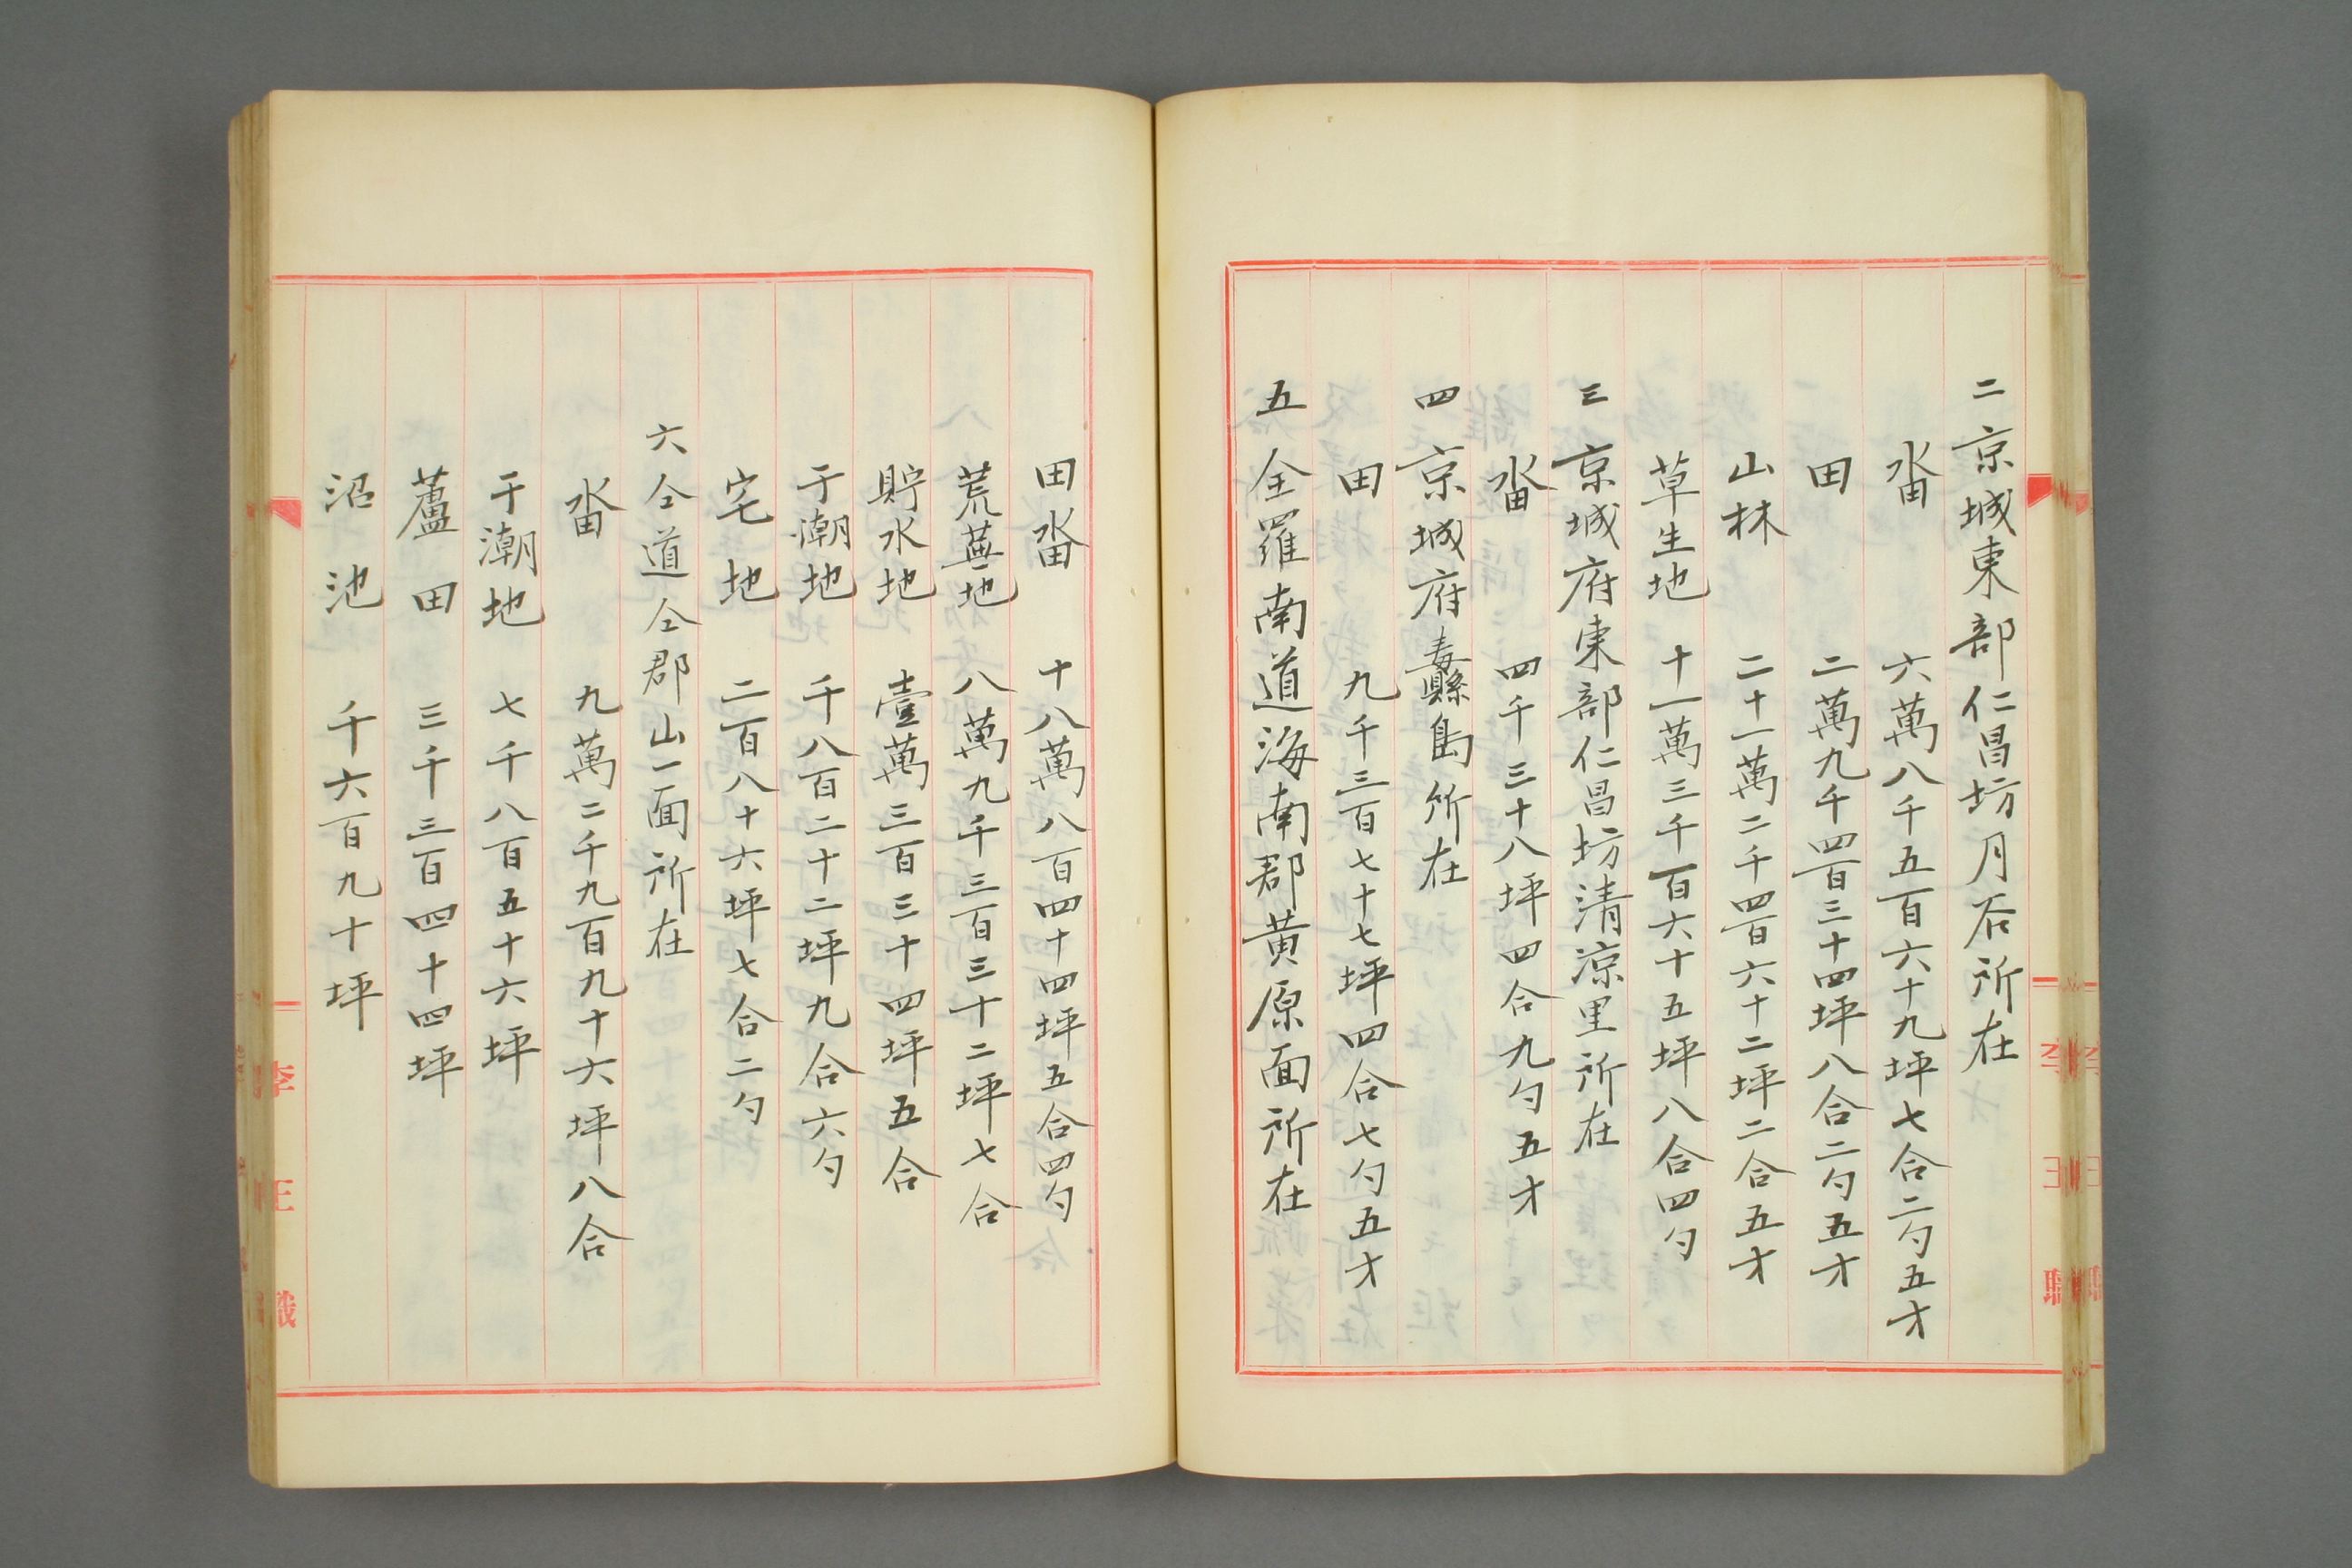 二 京城東部仁昌坊月谷所在
畓 六萬八千五百六十九坪七合二勺五才
田 二萬九千四百三十四坪八合二勺五才
山林 二十一萬二千四百六十二坪二合五才
草生地 十一萬三千百六十五坪八合四勺
三 京城府東部仁昌坊清凉里所在
畓 四千三十八坪四合九勺五才
四 京城府纛島所在
田 九千三百七十七坪四合七勺五才
五 全羅南道海南郡黃原面所在
田畓 十八萬八百四十四坪五合四勺
荒蕪地 八萬九千三百三十二坪七合
貯水地 壹萬三百三十四坪五合
干潮地 千八百二十二坪九合六勺
宅地 二百八十六坪七合二勺
六 仝道仝郡山一面所在
畓 九萬二千九百九十六坪八合
干潮地 七千八百五十六坪
蘆田 三千三百四十四坪
沼池 千六百九十坪
李王職